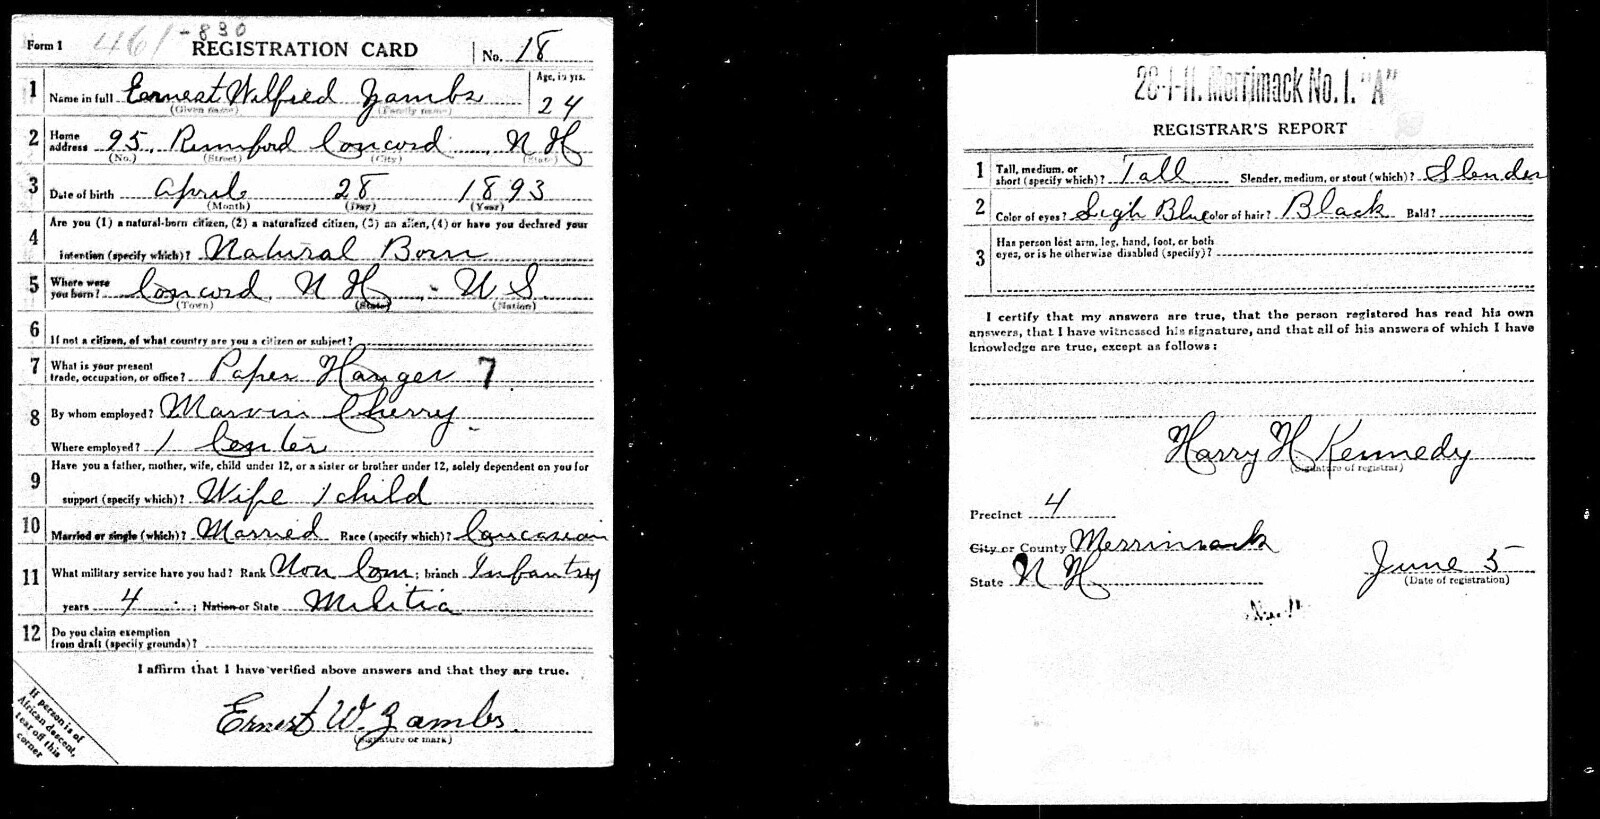 461-830
Form 1 REGISTRATION CARD No. 18
1 Name in full Ernest Wilfred Zambs Age, in yrs. 24
(Given name) (Family name)
2 Home address 95 Rumford Concord N H
(No.) (Street) (City) (State)
3 Date of birth April 28 1893
(Month) (Day) (Year)
4 Are you (1) a natural-born citizen, (2) a naturalized citizen, (3) an alien, (4) or have you declared your
intention (specify which)? Natural Born
5 Where were you born? Concord N H - U S
(Town) (State) (Nation)
6 If not a citizen, of what country are you a citizen or subject?
7 What is your present trade, occupation, or office? Paper Hanger 7
8 By whom employed? Marvin Cherry
Where employed? 1 Center
9 Have you a father, mother, wife, child under 12, or a sister or brother under 12, solely dependent on you for
support (specify which)? Wife 1 child
10 Married or single (which)? Married Race (specify which)? Caucasian
11 What military service have you had? Rank Non Com; branch Infantry
years 4; Nation or State Militia
12 Do you claim exemption
from draft (specify grounds)?
I affirm that I have verified above answers and that they are true.
Ernest W. Zambs
(Signature or mark)
If person is of
African descent,
tear off this
corner
28-1-11. Merrimack No. 1. "A"
REGISTRAR'S REPORT
1 Tall, medium, or short (specify which)? Tall Slender, medium, or stout (which)? Slender
2 Color of eyes? Ligh Blue Color of hair? Black Bald?
3 Has person lost arm, leg, hand, foot, or both
eyes, or is he otherwise disabled (specify)?
I certify that my answers are true, that the person registered has read his own
answers, that I have witnessed his signature, and that all of his answers of which I have
knowledge are true, except as follows:
Harry H Kennedy
(Signature of registrar)
Precinct 4
City or County Merrimack
State N H
June 5
(Date of registration)